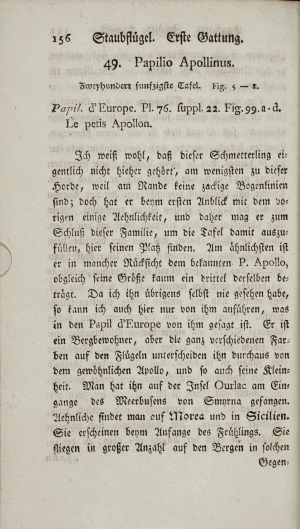 156 Staubflügel. Erste Gattung.
49. Papilio Apollinus.
Zweyhundert funfzigste Tafel. Fig. 5 — 8.
Papil. d'Europe. Pl. 76. suppl. 22. Fig. 99. a-d.
Le petis Apollon.
Ich weiß wohl, daß dieser Schmetterling ei-
gentlich nicht hieher gehört, am wenigsten zu dieser
Horde, weil am Rande keine zackige Bogenlinien
sind; doch hat er beym ersten Anblick mit dem vo-
rigen einige Aehnlichkeit, und daher mag er zum
Schluß dieser Familie, um die Tafel damit auszu-
füllen, hier seinen Platz finden. Am ähnlichsten ist
er in mancher Rücksicht dem bekannten P. Apollo,
obgleich seine Größe kaum ein drittel derselben be-
trägt. Da ich ihn übrigens selbst nie gesehen habe,
so kann ich auch hier nur von ihm anführen, was
in den Papil d'Europe von ihm gesagt ist. Er ist
ein Bergbewohner, aber die ganz verschiedenen Far-
ben auf den Flügeln unterscheiden ihn durchaus von
dem gewöhnlichen Apollo, und so auch seine Klein-
heit. Man hat ihn auf der Insel Ourlac am Ein-
gange des Meerbusens von Smyrna gefangen.
Aehnliche findet man auf Morea und in Sicilien.
Sie erscheinen beym Anfange des Frühlings. Sie
fliegen in großer Anzahl auf den Bergen in solchen
Gegen-